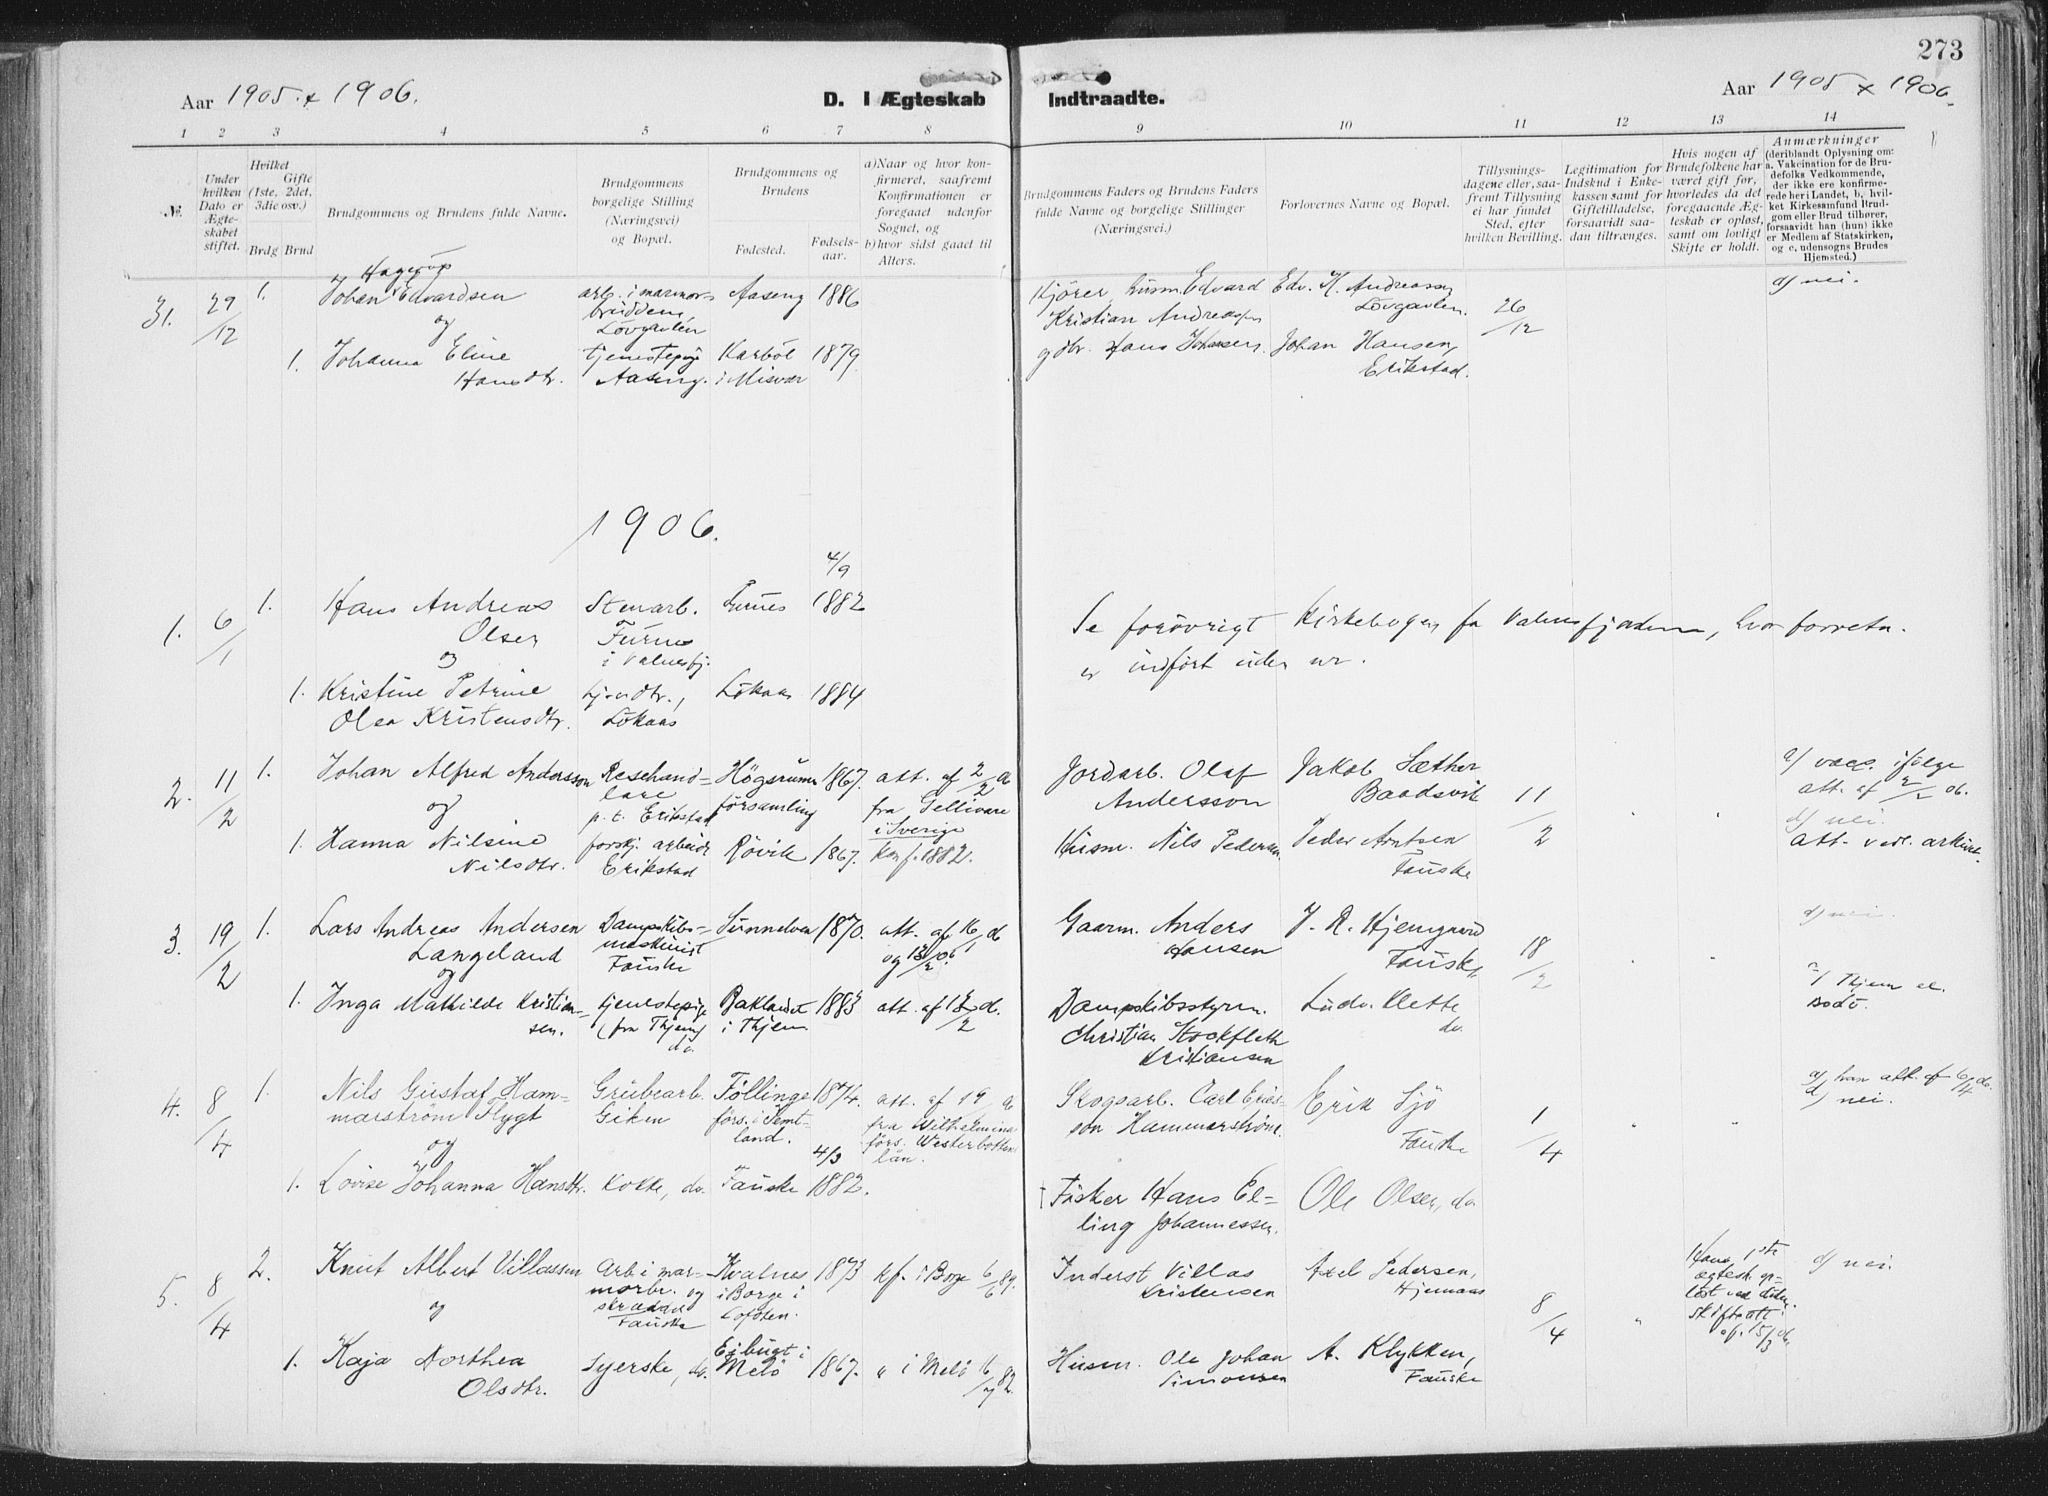 273
Aar 1905 & 1906.
D. I Ægteskab Indtraadte.
Aar 1905 & 1906.
1 2 3 4 5 6 7 8 9 10 11 12 13 14
№.
Under hvilken Dato er Ægteskabet stiftet.
Hvilket Gifte (1ste, 2det, 3die osv.)
Brdg Brud
Brudgommens og Brudens fulde Navne.
Brudgommens borgelige Stilling (Næringsvei) og Bopæl.
Brudgommens og Brudens
Fødested. Fødselsaar.
a) Naar og hvor konfirmeret, saafremt Konfirmationen er foregaaet udenfor Sognet, og
b) hvor sidst gaaet til Alters.
Brudgommens Faders og Brudens Faders fulde Navne og borgelige Stillinger (Næringsvei.)
Forlovernes Navne og Bopæl.
Tillysningsdagene eller, saafremt Tillysning ei har fundet Sted, efter hvilken Bevilling.
Legitimation for Indskud i Enkekassen samt for Giftetilladelse, forsaavidt saadan tiltrænges.
Hvis nogen af Brudefolkene har været gift før, hvorledes da det foregaaende Ægteskab er opløst, samt om lovligt Skifte er holdt.
Anmærkninger (deriblandt Oplysning om: a. Vakcination for de Brudefolks Vedkommende, der ikke ere konfirmerede her i Landet, b. hvilket Kirkesamfund Brudgom eller Brud tilhører, forsaavidt han (hun) ikke er Medlem af Statskirken, og c. udensogns Brudes Hjemsted.)
31. 29/12 1. Johan Hagerup Edvardsen arb. i marmorbruddene, Løvgavlen Aaseng 1886
Kjører, husm. Edvard Kristian Andreassen Edv. K. Andreassen Løvgavlen. 26/12 d) nei.
og
1. Johanna Eline Hansdtr. tjenestepige Aaseng. Karbøl i Misvær 1879.
gdbr. Hans Johansen. Johan Hansen, Erikstad.
1906.
1. 6/1 1. Hans Andreas Olsen Stenarb. Furnes i Valnesfj. Furnes 4/9 1882
Se forøvrigt Kirkebogen for Valnesfjorden, hvor forretn. er indført under nr.
og
1. Kristine Petrine Olea Kristensdtr. Løkaas Løkaas 1884
2. 11/2 1. Johan Alfred Andersson Resehandlare p.t. Erikstad Högsrums församling 1867. att. af 2/2 06 fra Gellivare i Sverige
Jordarb. Olaf Andersson Jakob Sæther Baadsvik 11/2 a) vacc. ifølge att. af 2/2 06.
d) nei.
att. vedl. arkivet.
og
1. Hanna Nilsine Nilsdtr. forskj. arbeide Erikstad Røvik 1867. konf. 1882.
Husm. Nils Pedersen. Peder Arntsen Fauske
3. 19/2 1. Lars Andreas Andersen Langeland Dampskibsmaskinist Fauske Sunnelven 1870.
Gaarm. Anders Hansen J. R. Hjemgaard Fauske 18/2 d) nei.
og
1. Inga Mathilde Kristiansen. tjenestepige Baklandet i Thjem 1883 att. af
Dampskibsstyrm. Christian Stockfleth Kristiansen Ludv. Klette do.
4. 8/4 1. Nils Gustaf Hammarström Flygt Grubearb. Giken Föllinge förs. i Jemtland. 1874. att. af fra Wilhelmina förs. Westerbottens län.
Skogsarb. Carl Ericsson Hammarström. Erik Sjö Fauske 1/4 a) han att. af 6/4 06.
d) nei.
og
1. Lovise Johanna Hansdtr. Kokke, do. Fauske 4/3 1882.
† Fisker Hans Elling Johannessen. Ole Olsen, do
5. 8/4 2. Knut Albert Villassen Arb. i marmorbr. og skrædder Fauske Kvalnes i Borge i Lofoten. 1873 kf. i Borge 6/6 89.
Inderst Villas Kristensen Axel Pedersen, Hjemaas 8/4 Hans 1ste ægtesk. opløst ved døden. Skifteatt. af 15/3 06. d) nei.
og
1. Kaja Dorthea Olsdtr. Syerske, do. Melö 1867. " i Melö
Husm. Ole Johan Simonsen A. Klykken, Fauske